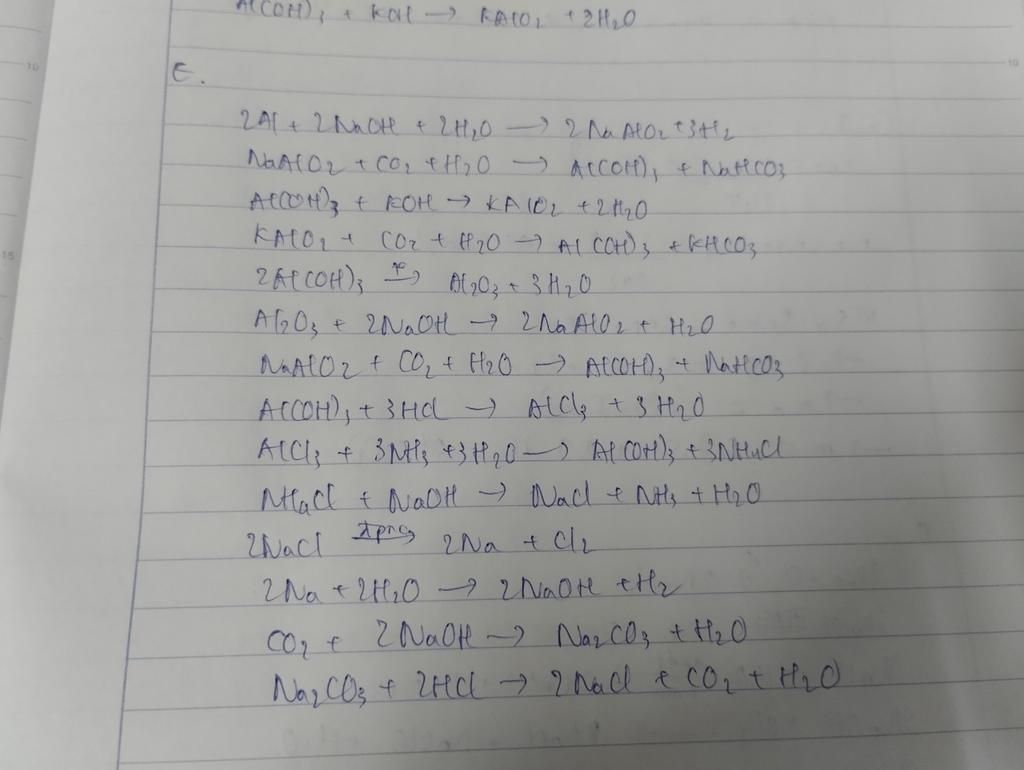 Al(OH)3 + KOH → KAlO2 + 2H2O
E.
2Al + 2NaOH + 2H2O → 2NaAlO2 + 3H2
NaAlO2 + CO2 + H2O → Al(OH)3 + NaHCO3
Al(OH)3 + KOH → KAlO2 + 2H2O
KAlO2 + CO2 + H2O → Al(OH)3 + KHCO3
2Al(OH)3 → Al2O3 + 3H2O
Al2O3 + 2NaOH → 2NaAlO2 + H2O
NaAlO2 + CO2 + H2O → Al(OH)3 + NaHCO3
Al(OH)3 + 3HCl → AlCl3 + 3H2O
AlCl3 + 3NH3 + 3H2O → Al(OH)3 + 3NH4Cl
NH4Cl + NaOH → NaCl + NH3 + H2O
2NaCl đpnc→ 2Na + Cl2
2Na + 2H2O → 2NaOH + H2
CO2 + 2NaOH → Na2CO3 + H2O
Na2CO3 + 2HCl → 2NaCl + CO2 + H2O